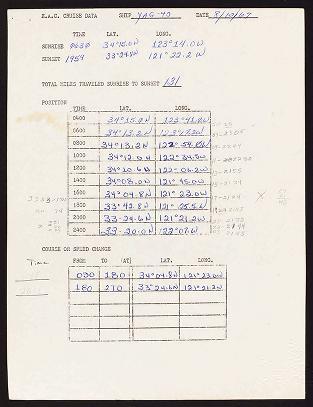 E.A.C. CRUISE DATA SHIP YAG-40 DATE 8/10/67
TIME LAT. LONG.
SUNRISE 0630 34°15.0N 123°14.0W
SUNSET 1954 33°24.8N 121°22.2W
TOTAL MILES TRAVELED SUNRISE TO SUNSET 131
POSITION
TIME LAT. LONG.
0400 34°15.0N 123°41.0W
0600 34°13.2N
0800 34°13.2N 122°54.0W
1000 34°12.0N 122°34.5W
1200 34°10.6N 122°06.2W
1400 34°08.0N 121°45.0W
1600 34°04.8N 121°23.0W
1800 33°42.8N 121°25.5W
2000 33-24.6N 121°21.2W
2400 33-20.0N 122°07.W
COURSE OR SPEED CHANGE
Time FROM TO (AT) LAT. LONG.
090 180 34°04.8N 121°23.0W
180 270 33°24.6N 121°21.2W